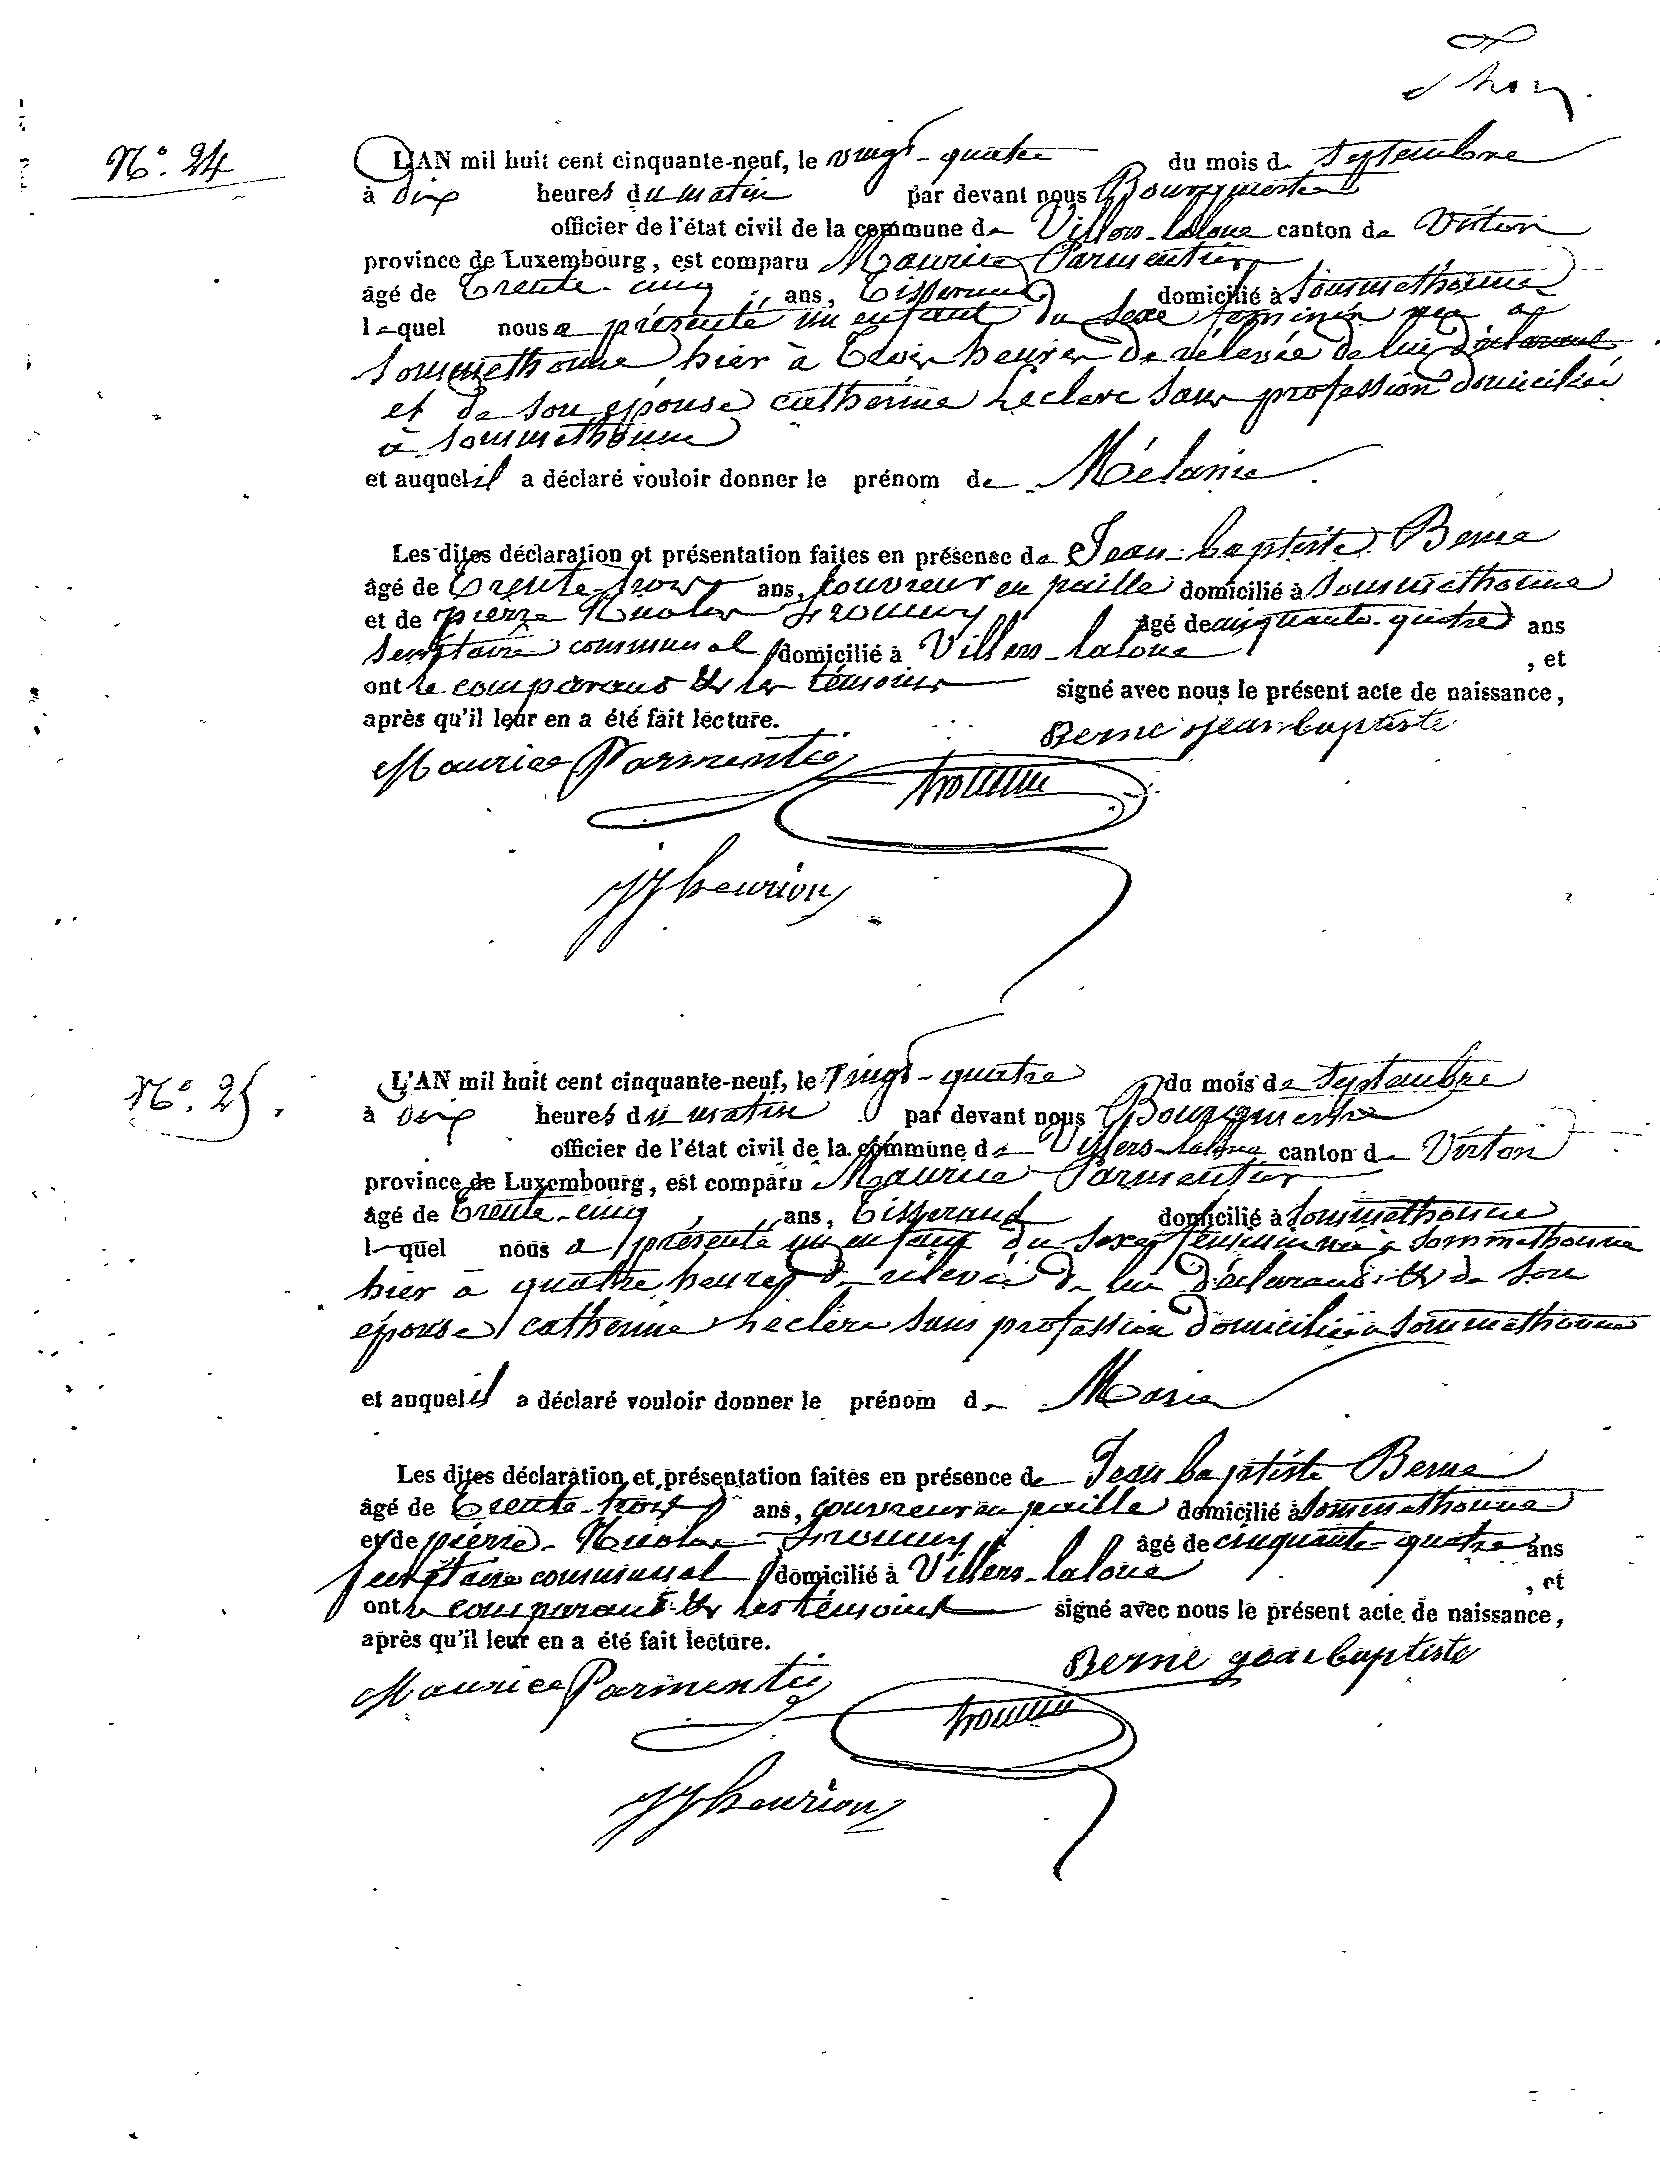 Thon
N°. 24
L'AN mil huit cent cinquante-neuf, le vingt-quatre du mois de Septembre
à dix heures du matin par devant nous Bourgmestre
officier de l'état civil de la commune de Villers-laloue canton de Virton
province de Luxembourg, est comparu Maurice Parmentier
âgé de trente-cinq ans, tisserand domicilié à Sommethonne
lequel nous a présenté un enfant du sexe féminin né à
Sommethonne hier à trois heures de relevée de lui déclarant
et de son épouse catherine Leclere sans profession domiciliée
à Sommethonne
et auquel il a déclaré vouloir donner le prénom de Mélanie
Les dites déclaration et présentation faites en présense de Jean-baptiste Berne
âgé de trente-trois ans, couvreur en paille domicilié à Sommethonne
et de pierre Nicolas âgé de cinquante-quatre ans
Secrétaire communal domicilié à Villers-laloue , et
ont le comparant & les témoins signé avec nous le présent acte de naissance,
après qu'il leur en a été fait lecture.
Berne jean baptiste
Maurice Parmentier
JJ henrion
N°. 25.
L'AN mil huit cent cinquante-neuf, le vingt-quatre du mois de Septembre
à dix heures du matin par devant nous Bourgmestre
officier de l'état civil de la commune de Villers-laloue canton de Virton
province de Luxembourg, est comparu Maurice Parmentier
âgé de trente-cinq ans, tisserand domicilié à Sommethonne
lequel nous a présenté un enfant du sexe féminin né à Sommethonne
hier à quatre heures de relevée de lui déclarant & de son
épouse catherine Leclere sans profession domiciliée à Sommethonne
et auquel il a déclaré vouloir donner le prénom de Marie
Les dites déclaration et présentation faites en présence de Jean baptiste Berne
âgé de trente-trois ans, couvreur en paille domicilié à Sommethonne
et de pierre-Nicolas âgé de cinquante-quatre ans
Secrétaire communal domicilié à Villers-laloue , et
ont le comparant & les témoins signé avec nous le présent acte de naissance,
après qu'il leur en a été fait lecture.
Berne jean baptiste
Maurice Parmentier
JJ henrion